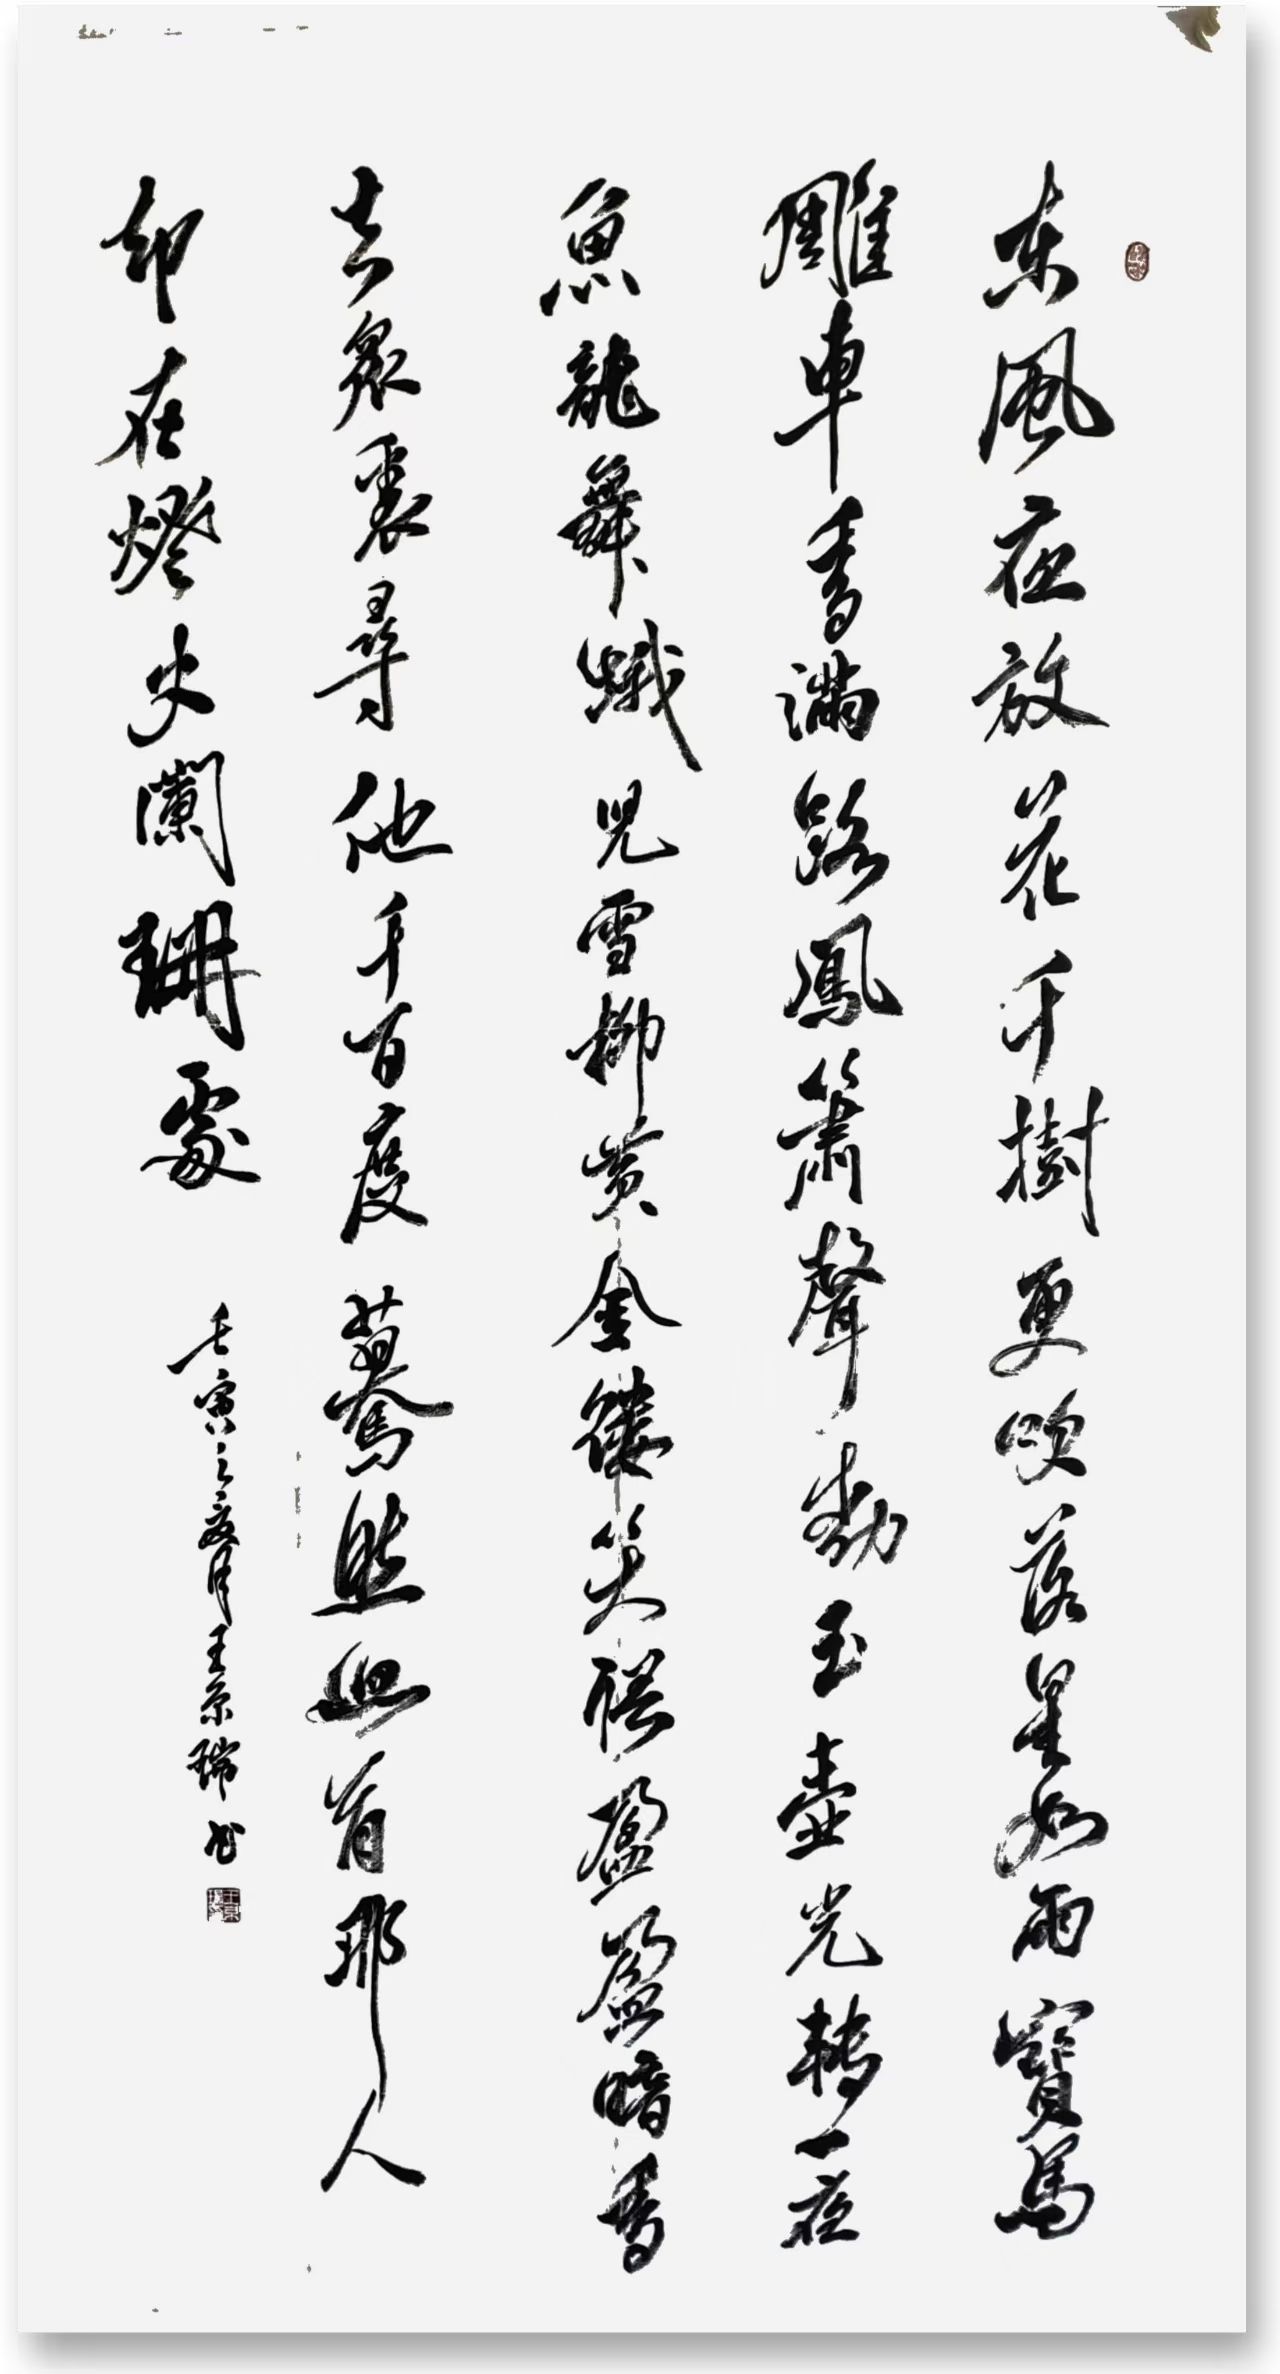 東風夜放花千樹更吹落星如雨寶馬
雕車香滿路鳳簫聲動玉壺光轉一夜
魚龍舞蛾兒雪柳黃金縷笑語盈盈暗香
去衆裏尋他千百度驀然回首那人
却在燈火闌珊處
壬寅之夏月王京瑞书